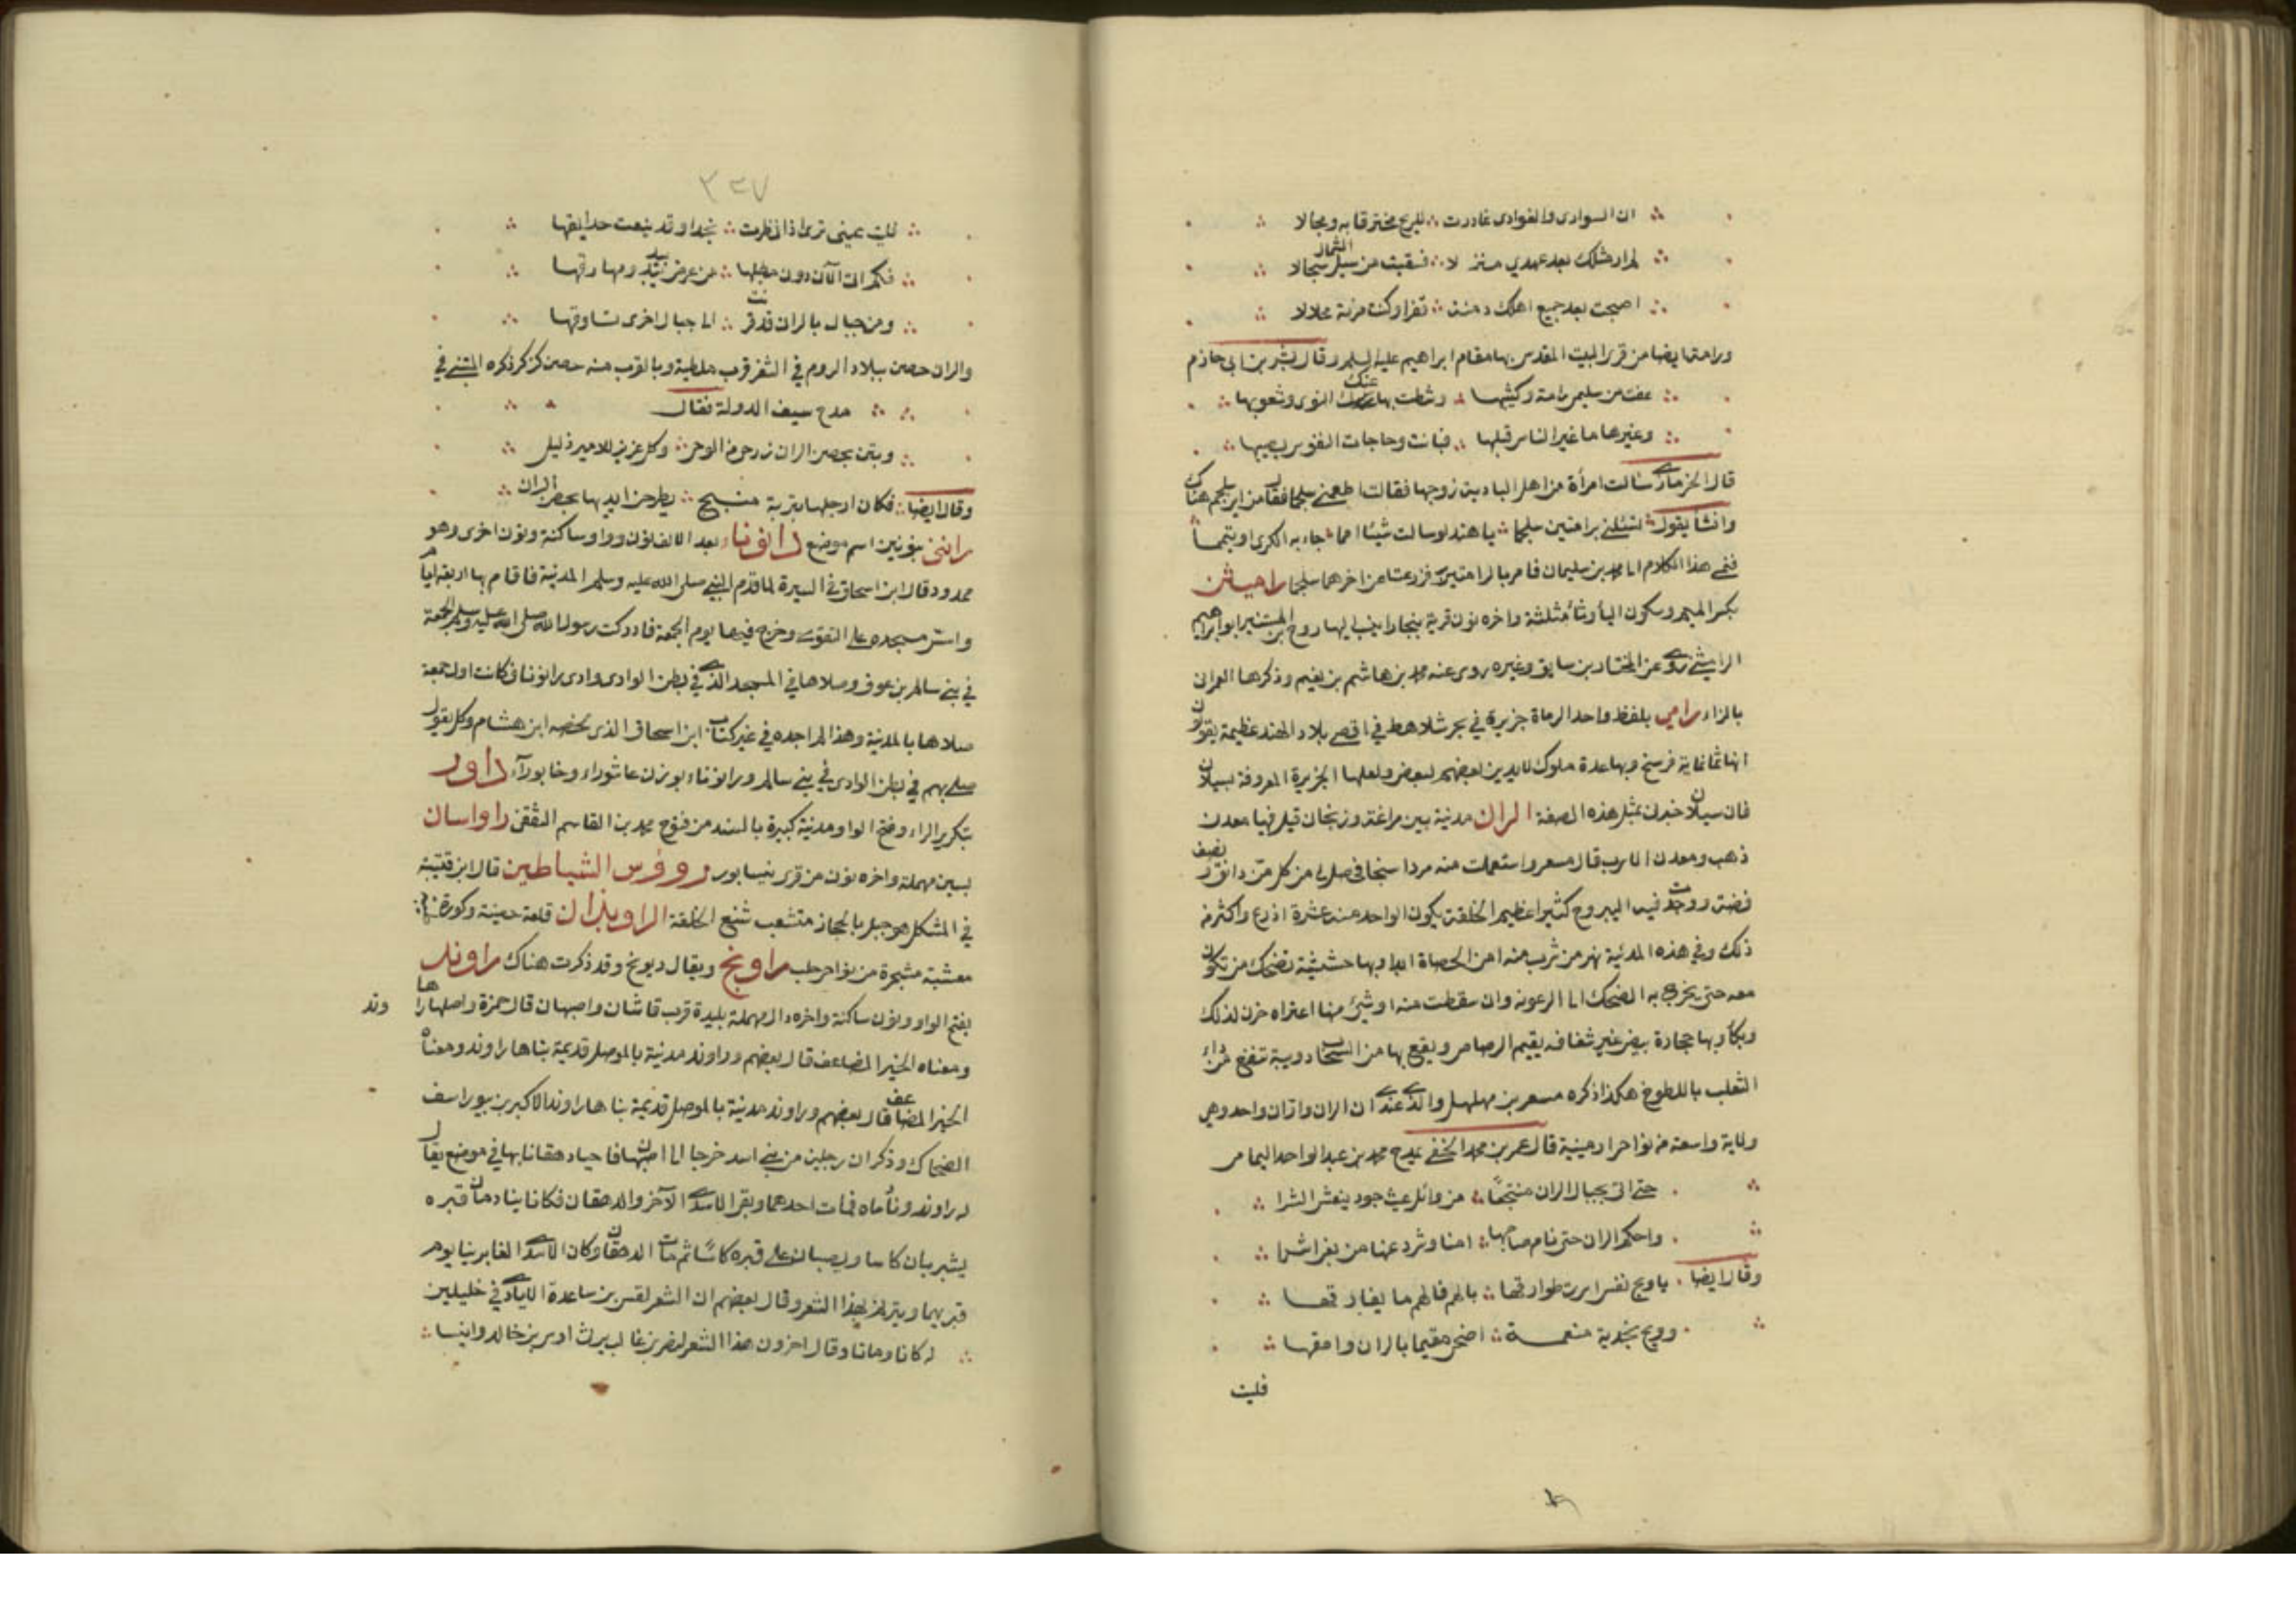 ان السوارى والغوادى غادرت للريح مخترقا به ومجالا
لم ار مثلك بعد عهدي منزلا فسقيت من سبل الشمال سجالا
اصبحت بعد جميع اهلك دمنة قفرا وكنت مربة محلالا
ورامة ايضا من قرى البيت المقدس بها مقام ابراهيم عليه السلم وقال بشر بن ابى حازم
عفت من سليمى رامة وكثيبها وشطت بها عنك النوى وشعوبها
وغيرها ما غير الناس قبلها فبانت وحاجات النفوس يصيبها
قال الخرمازى سألت امرأة من اهل البادية زوجها فقالت اطعمنى سلجما فقال من اين سلجم هناك
وانشأ يقول تسئلنى برامتين سلجما يا هند لو سالت شيئا امما جاء به الكرى او يتمما
فنمى هذا الكلام الى محمد بن سليمان فامر بالرامتين فزرعتا عن اخرهما سلجما راميثن
بكسر الميم وسكون الياء وثاء مثلثة واخره نون قرية ببخارا ينسب اليها روح بن المستنير ابو ابراهيم
الراميثنى روى عن المختار بن سابق وغيره روى عنه محمد بن هاشم بن نعيم وذكرها العمرانى
بالزاء رامي بلفظ واحد الرماة جزيرة في بحر شلاهط في اقصى بلاد الهند عظيمة يقولون
انها ثمانماية فرسخ وبها عدة ملوك لا يدين بعضهم لبعض ولعلها الجزيرة المعروفة بسيلان
فان سيلان خبرت بمثل هذه الصفة الران مدينة بين مراغة وزنجان قيل فيها معدن
ذهب ومعدن الاسرب قال مسعر واستعملت منه مردا سنجا فحصل لى من كل من دانق ونصف
فضة ووجدت فيه اليبروح كثيرا عظيم الخلقة يكون الواحد منه عشرة اذرع واكثر من
ذلك وفي هذه المدينة نهر من شرب منه امن الحصاة ابدا وبها حشيشة تضحك من تكون
معه حتى يخرج به الضحك الى الرعونة وان سقطت منه او شئ منها اعتراه حزن لذلك
وبكا وبها حجارة بيض غير شفافه يقيم الرصاص ويقع بها من السحاب دويبة تنفع من داء
الثعلب باللطوخ هكذا ذكره مسعر بن مهلهل والذى عندى ان الران واران واحد وهي
ولاية واسعة من نواحى ارمينية قال عمر بن محمد الحنفى يمدح محمد بن عبد الواحد اليمامى
حتى اتى بجبال الران منتجعا من وائل غيث جود ينعش الشرا
واحكم الران حتى نام صاحبها امنا وشرد عنها من بغى اشرا
وقال ايضا يا ويح نفس سرت طوارقها بالهم فالهم ما يفارقها
وويح نجدية منعمة اضحى مقيما بالران وامقها
فليت
٣٣٧
فليت عينى ترى اذا نظرت نجدا وقد ينعت حدايقها
فكم الى الآن دون مطلبها من عرض بيد ومهارقها
ومن جبال بالران قد قرنت الى جبال اخرى تساوقها
والران حصن ببلاد الروم في الثغر قرب ملطية وبالقرب منه حصن كركر ذكره المتنبى في
مدح سيف الدولة فقال
وبتن بحصن الران رزحى من الوجى وكل عزيز للامير ذليل
وقال ايضا فكان ارجلها بتربة منبج يطرحن ايديها بحصن الران
راننى بنونين اسم موضع رانوناء بعد الالف نون وواو ساكنة ونون اخرى وهو
ممدود قال ابن اسحاق في السيرة لما قدم النبى صلى الله عليه وسلم المدينة فاقام بها اربعة ايام
واسس مسجده على التقوى وخرج فيها يوم الجمعة فادركت رسول الله صلى الله عليه وسلم الجمعة
في بنى سالم بن عوف وصلاها في المسجد الذى في بطن الوادى وادى رانونا فكانت اول جمعة
صلاها بالمدينة وهذا لم اجده في غير كتاب ابن اسحاق الذى لخصه ابن هشام وكل يقول
صلى بهم في بطن الوادى في بنى سالم ورانوناء بوزن عاشوراء وخابوراء راور
بتكرير الراء وفتح الواو مدينة كبيرة بالسند من فتوح محمد بن القاسم الثقفى راواسان
بسين مهملة واخره نون من قرى نيسابور رووفرس الشياطين قال ابن قتيبة
في المشكل هو جبل بالحجاز متشعب شنع الخلقة الراويذان قلعة حصينة وكورة
معشبة مشجرة من نواحى حلب راونج ويقال ربونج وقد ذكرت هناك راوند
بفتح الواو ونون ساكنة واخره دال مهملة بليدة قرب قاشان واصبهان قال حمزة واصلها راها وند
ومعناه الخير المضاعف قال بعضهم وراوند مدينة بالموصل قديمة بناها راوند ومعناه
الخير المضاعف قال بعضهم وراوند مدينة بالموصل قديمة بناها راوند الاكبر بن بيوراسف
الضحاك وذكر ان رجلين من بنى اسد خرجا الى اصبهان فاخيا دهقانا بها في موضع يقال
له راوند ونادماه فمات احدهما وبقى الاسدى الآخر والدهقان فكانا ينادمان قبره
يشربان كاسا ويصبان على قبره كاسًا ثم مات الدهقان وكان الاسدى الغابر ينادم
قبريهما ويترنم بهذا الشعر وقال بعضهم ان الشعر لقس بن ساعدة الايادى في خليلين
له كانا وماتا وقال اخرون هذا الشعر لنصر بن غالب يرث اوس بن خالد وانيسا